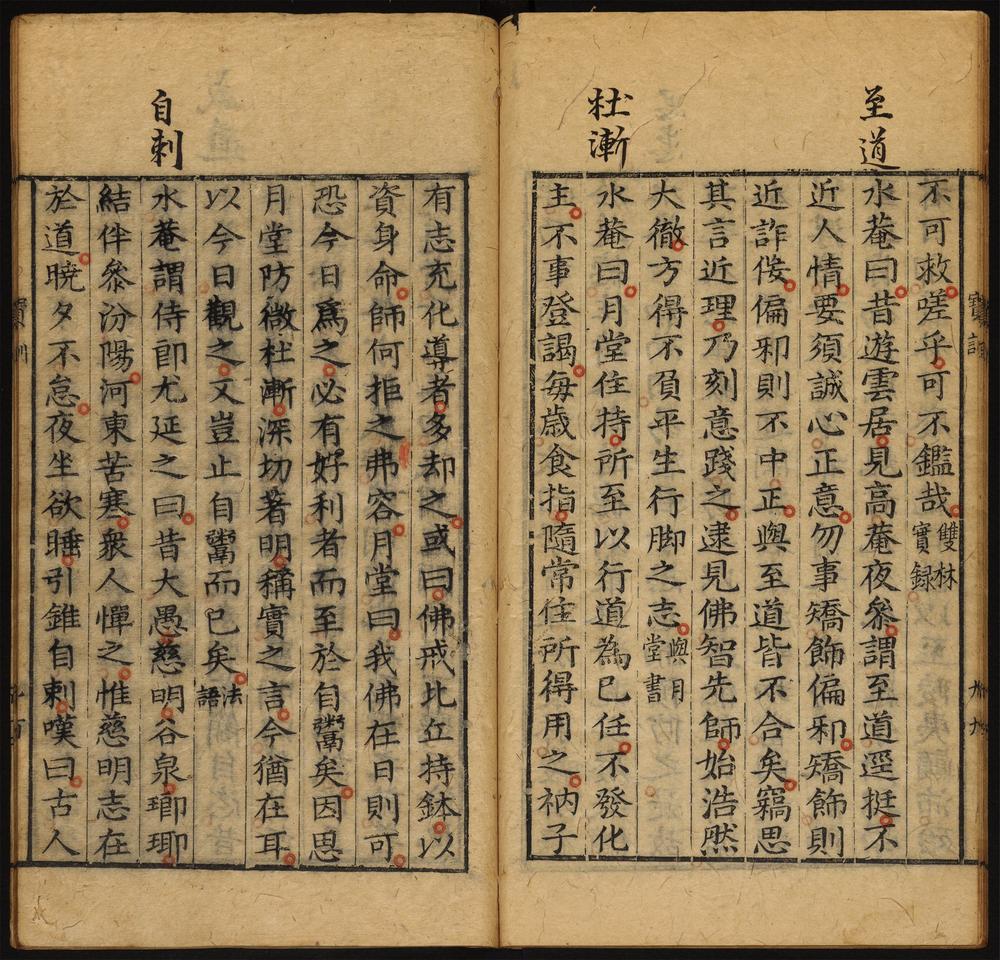 至道
杜漸
不可救嗟乎可不鑑哉雙林實録
水菴曰昔遊雲居見高菴夜叅謂至道逕挺不
近人情要須誠心正意勿事矯飾偏邪矯飾則
近詐佞偏邪則不中正與至道皆不合矣竊思
其言近理乃刻意踐之逮見佛智先師始浩然
大徹方得不負平生行脚之志與月堂書
水菴曰月堂住持所至以行道為已任不發化
主不事登謁每歳食指隨常住所得用之衲子
寶訓
自刺
有志充化導者多却之或曰佛戒比丘持鉢以
資身命師何拒之弗容月堂曰我佛在日則可
恐今日爲之必有好利者而至於自鬻矣因思
月堂防微杜漸深切著明稱實之言今猶在耳
以今日觀之又豈止自鬻而已矣法語
水菴謂侍郎尤延之曰昔大愚慈明谷泉瑯琊
結伴叅汾陽河東苦寒衆人憚之惟慈明志在
於道曉夕不怠夜坐欲睡引錐自刺嘆曰古人